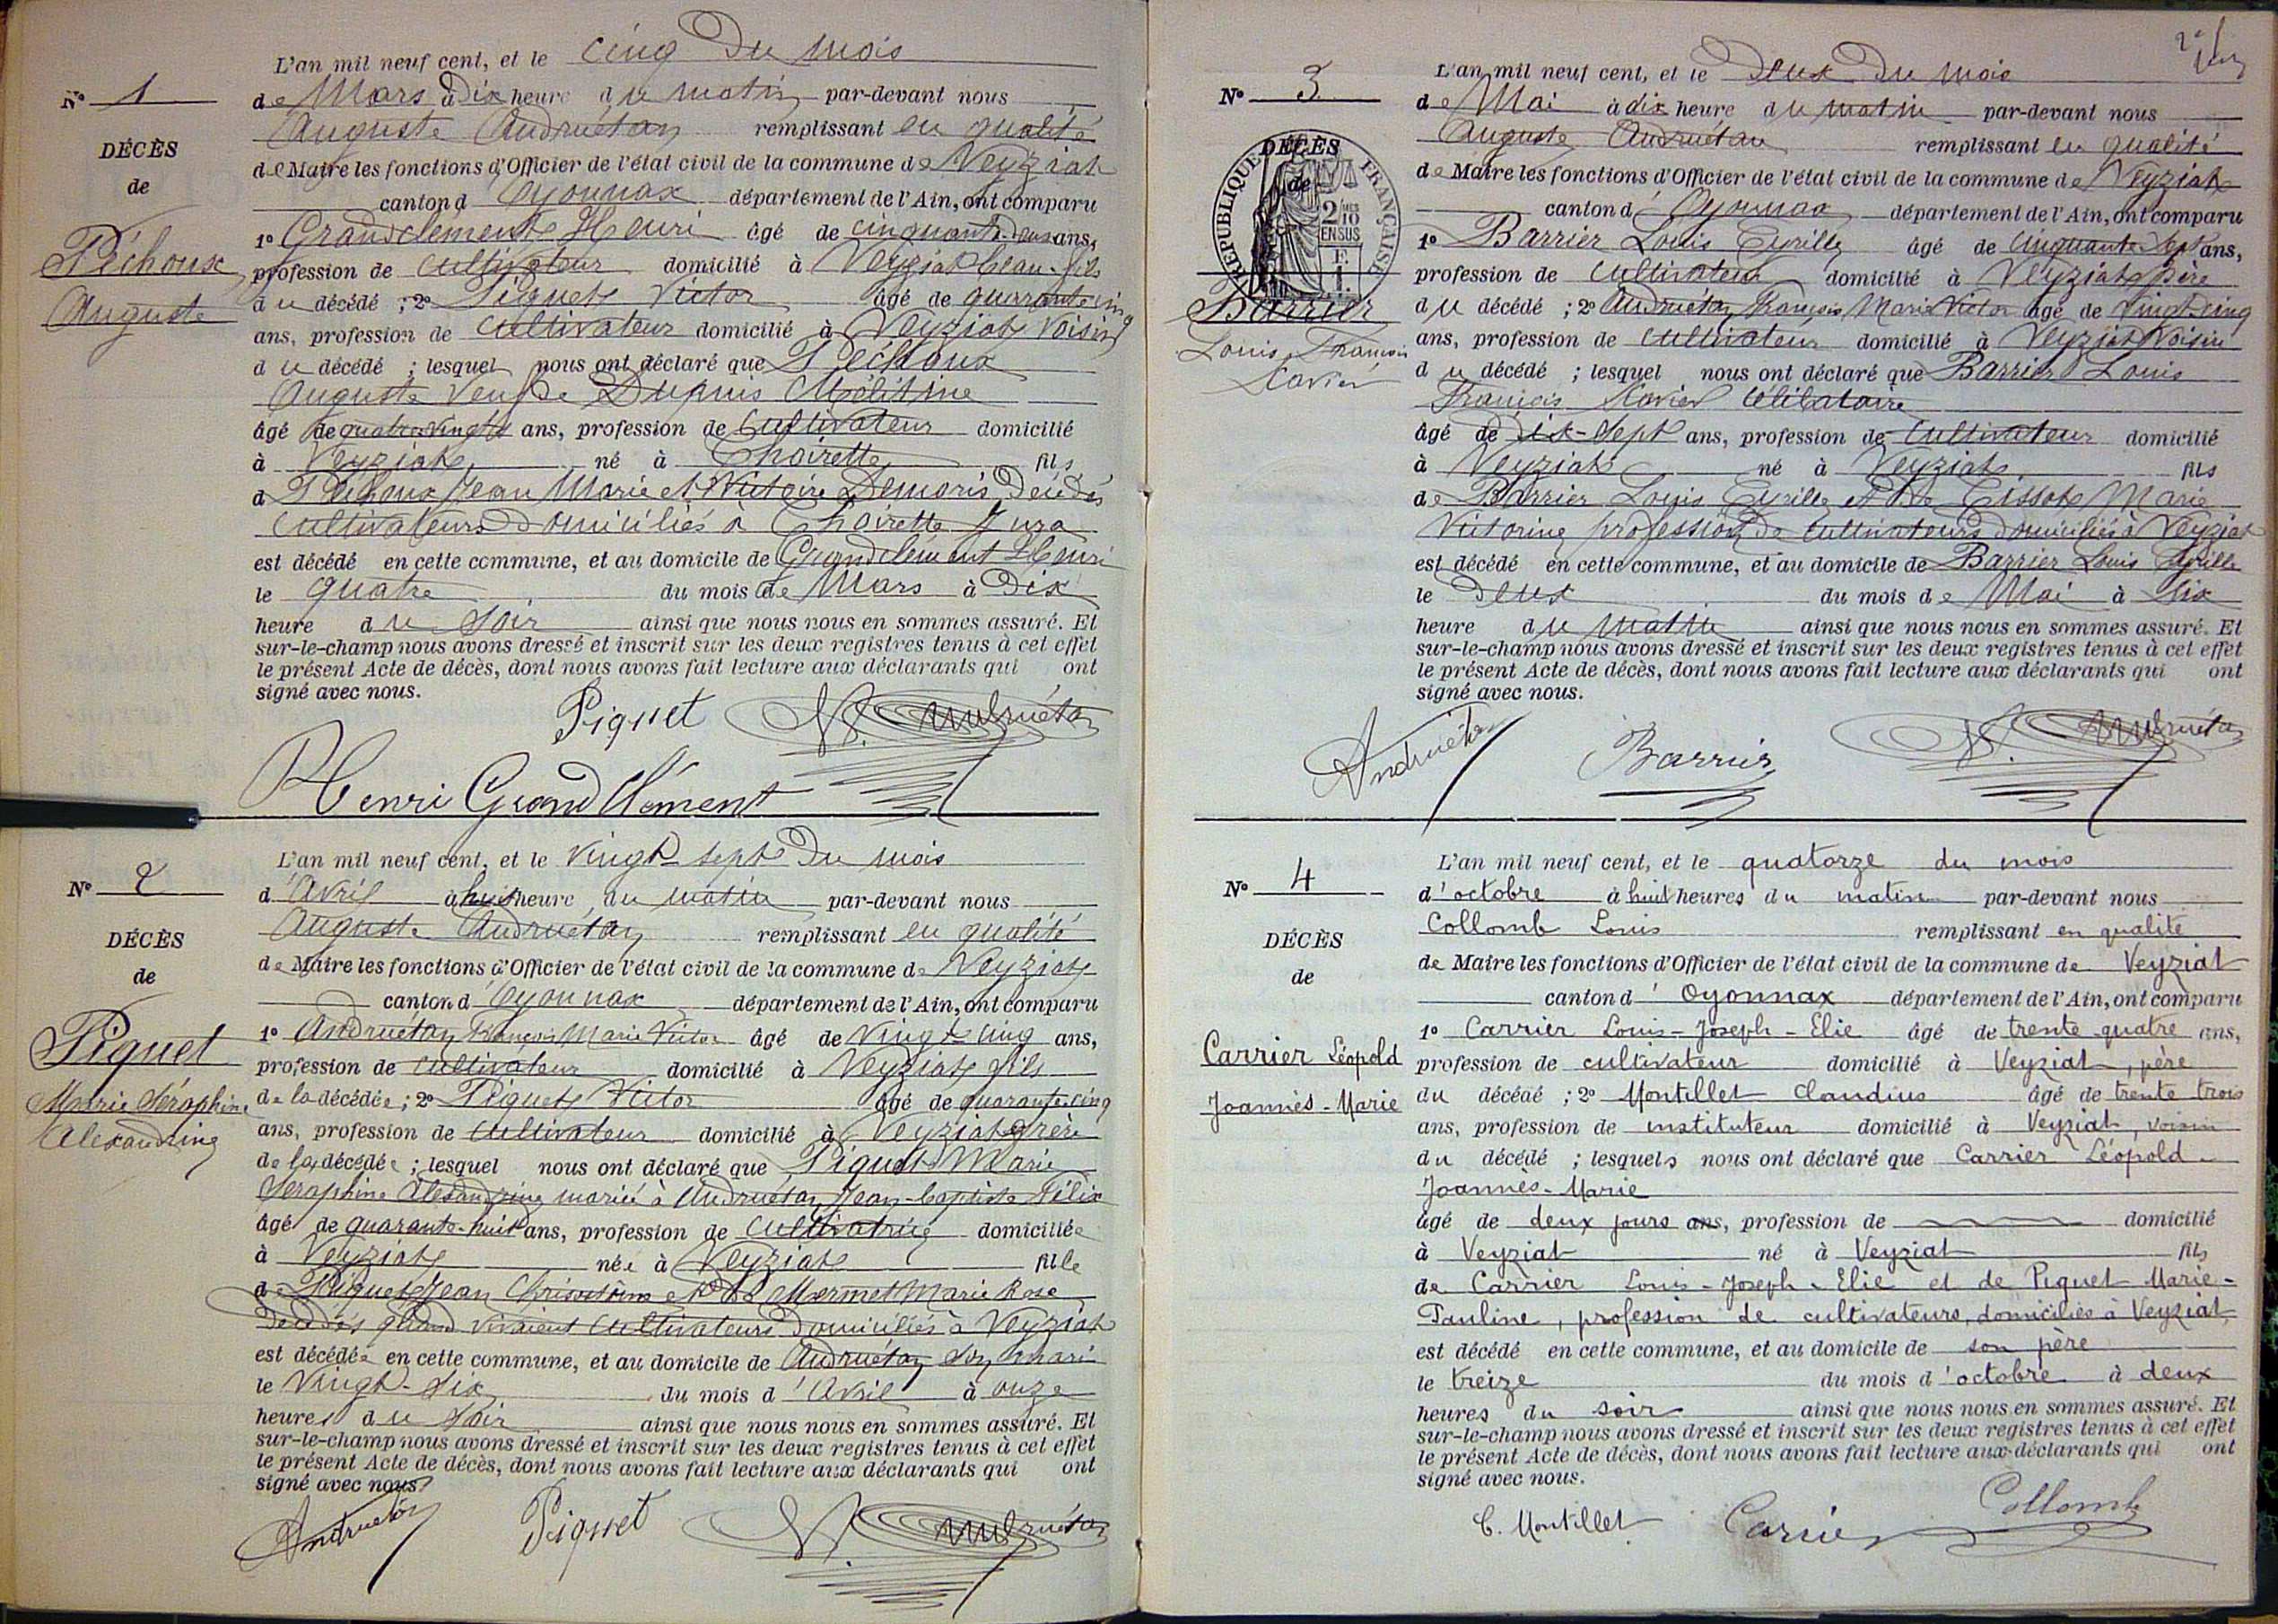 L'an mil neuf cent, et le cinq du mois
N° 1
de Mars à Dix heure du matin par-devant nous
Auguste Andruétan remplissant en qualité
DÉCÈS
de Maire les fonctions d'Officier de l'état civil de la commune de Veyziat
de
canton d'Oyonnax département de l'Ain, ont comparu
1° Grandclément Henri âgé de cinquante-deux ans,
Péchoux
profession de cultivateur domicilié à Veyziat beau-fils
du décédé ; 2° Piquet Victor âgé de quarante cinq
Auguste
ans, profession de cultivateur domicilié à Veyziat voisin
du décédé ; lesquel nous ont déclaré que Péchoux
Auguste Veuf de Dupuis Mélitine
âgé de quatre vingts ans, profession de Cultivateur domicilié
à Veyziat né à Choirette fils
d Péchoux Jean Marie et Victoire Demoris Décédés
cultivateurs domiciliés à Choirette Jura
est décédé en cette commune, et au domicile de Grandclément Henri
le quatre du mois de Mars à Dix
heure du Soir ainsi que nous nous en sommes assuré. Et
sur-le-champ nous avons dressé et inscrit sur les deux registres tenus à cet effet
le présent Acte de décès, dont nous avons fait lecture aux déclarants qui ont
signé avec nous.
Piquet Andruétan
Henri Grandclément
L'an mil neuf cent, et le vingt-sept Du mois
N° 2
d'Avril à huit heure du matin par-devant nous
Auguste Andruétan remplissant en qualité
DÉCÈS
de Maire les fonctions d'Officier de l'état civil de la commune de Veyziat
de
canton d'Oyonnax département de l'Ain, ont comparu
1° Andruétan François Marie Victor âgé de Vingt cinq ans,
Piquet
profession de cultivateur domicilié à Veyziat fils
Marie Séraphine
de la décédée ; 2° Piquet Victor âgé de quarante cinq
Alexandrine
ans, profession de cultivateur domicilié à Veyziat frère
de la décédée ; lesquel nous ont déclaré que Piquet Marie
Séraphine Alexandrine mariée à Andruétan Jean-baptiste Félix
âgé de quarante-huit ans, profession de cultivatrice domiciliée
à Veyziat née à Veyziat fille
de Piquet Jean Chrisostôme et de Mermet Marie Rose
décédés quand vivaient cultivateurs domiciliés à Veyziat
est décédée en cette commune, et au domicile de Andruétan son mari
le Vingt-Six du mois d'Avril à onze
heures du Soir ainsi que nous nous en sommes assuré. Et
sur-le-champ nous avons dressé et inscrit sur les deux registres tenus à cet effet
le présent Acte de décès, dont nous avons fait lecture aux déclarants qui ont
signé avec nous.
Andruétan Piquet Andruétan
L'an mil neuf cent, et le Deux Du mois
N° 3
de Mai à dix heure du matin par-devant nous
Auguste Andruétan remplissant en qualité
DÉCÈS
de
RÉPUBLIQUE FRANÇAISE
de Maire les fonctions d'Officier de l'état civil de la commune de Veyziat
canton d'Oyonnax département de l'Ain, ont comparu
1° Barrier Louis Cyrille âgé de cinquante sept ans,
profession de cultivateur domicilié à Veyziat père
Barrier
du décédé ; 2° Andruétan François Marie Victor âgé de Vingt-cinq
Louis François
ans, profession de cultivateur domicilié à Veyziat Voisin
Xavier
du décédé ; lesquel nous ont déclaré que Barrier Louis
François Xavier Célibataire
âgé de dix-Sept ans, profession de Cultivateur domicilié
à Veyziat né à Veyziat fils
de Barrier Louis Cyrille et de Tissot Marie
Victorine profession de cultivateurs domiciliés à Veyziat
est décédé en cette commune, et au domicile de Barrier Louis Cyrille
le Deux du mois de Mai à Six
heure du matin ainsi que nous nous en sommes assuré. Et
sur-le-champ nous avons dressé et inscrit sur les deux registres tenus à cet effet
le présent Acte de décès, dont nous avons fait lecture aux déclarants qui ont
signé avec nous.
Andruétan Barrier Andruétan
L'an mil neuf cent, et le quatorze du mois
N° 4
d'octobre à huit heures du matin par-devant nous
Collomb Louis remplissant en qualité
DÉCÈS
de Maire les fonctions d'Officier de l'état civil de la commune de Veyziat
de
canton d'Oyonnax département de l'Ain, ont comparu
1° Carrier Louis-Joseph-Elie âgé de trente-quatre ans,
Carrier Léopold
profession de cultivateur domicilié à Veyziat, père
Joannès-Marie
du décédé ; 2° Montillet Claudius âgé de trente trois
ans, profession de instituteur domicilié à Veyziat, voisin
du décédé ; lesquels nous ont déclaré que Carrier Léopold-
Joannès-Marie
âgé de deux jours ans, profession de domicilié
à Veyziat né à Veyziat fils
de Carrier Louis-Joseph-Elie et de Piquet Marie-
Pauline, profession de cultivateurs, domiciliés à Veyziat
est décédé en cette commune, et au domicile de son père
le treize du mois d'octobre à deux
heures du soir ainsi que nous nous en sommes assuré. Et
sur-le-champ nous avons dressé et inscrit sur les deux registres tenus à cet effet
le présent Acte de décès, dont nous avons fait lecture aux déclarants qui ont
signé avec nous.
C. Montillet Carrier Collomb